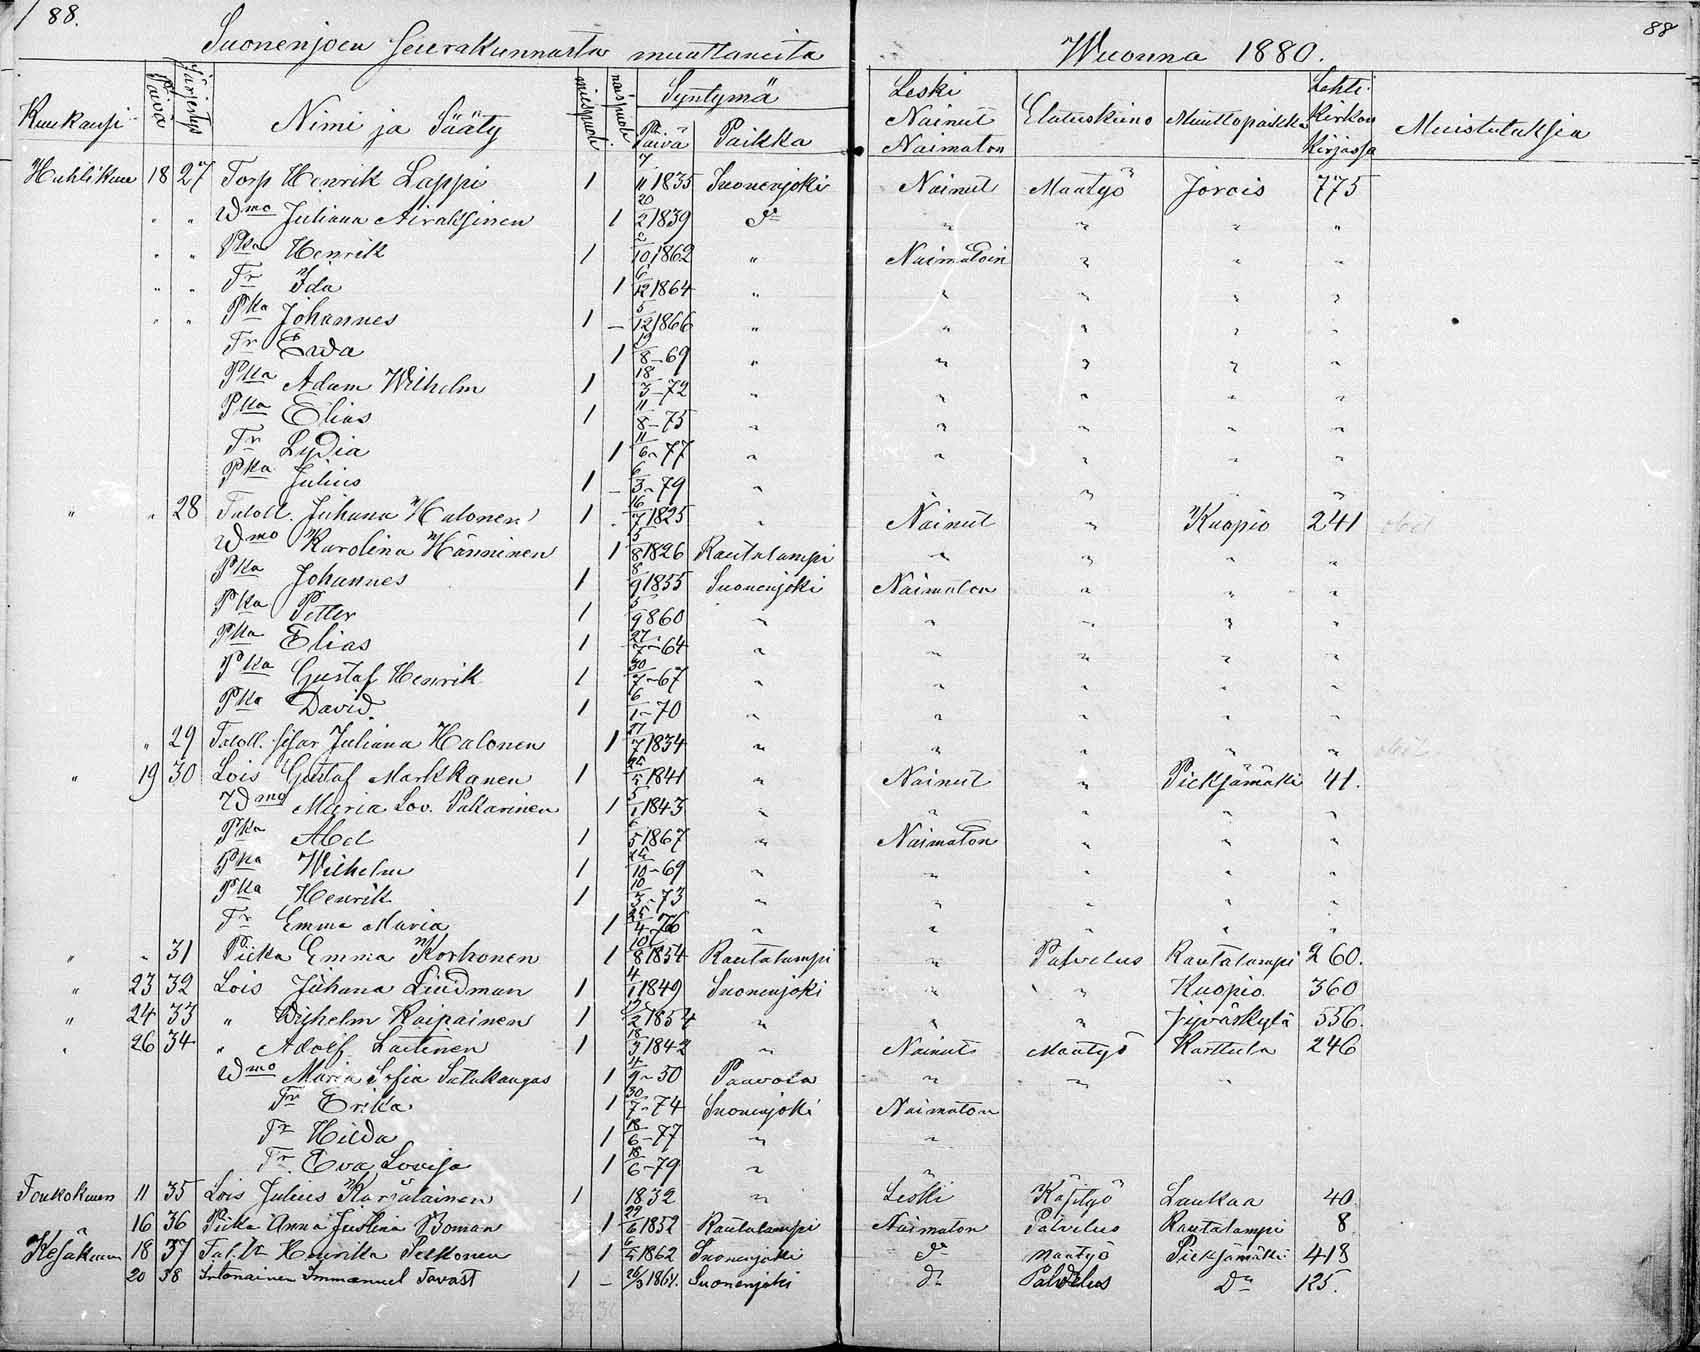 88. 88
Suonenjoen seurakunnasta muuttaneita Wuonna 1880.
Kuukausi Päivä Järjestys Nimi ja Sääty miespuoli naispuoli Syntymä Päivä Paikka Leski Nainut Naimaton Elatuskeino Muuttopaikka Lehti Kirkon kirjassa Muistutuksia
Huhtikuu 18 27 Torp Henrik Lappi 1 7/11 1835 Suonenjoki Nainut Maatyö Jorois 775
" " Wmo Juliana Airaksinen 1 20/2 1839 Do " " " "
" " Pka Henrik 1 2/10 1862 " Naimatoin " " "
" " Tr Ida 1 6/12 1864 " " " " "
" " Pka Johannes 1 – 5/12 1866 " " " " "
Tr Ewa 1 19/8 – 69 " " " " "
Pka Adam Wilhelm 1 18/3 – 72 " " " " "
Pka Elias 1 11/8 – 75 " " " " "
Tr Lydia 1 11/6 – 77 " " " " "
Pka Julius 1 – 6/3 – 79 " " " "
" " 28 Taloll. Juhana Halonen 1 16/7 1825 " Nainut " Kuopio 241
Wmo Karolina Hänninen 1 5/8 1826 Rautalampi " " " "
Pka Johannes 1 8/9 1855 Suonenjoki Naimaton " " "
Pka Petter 1 5/9 860 " " " " "
Pka Elias 1 27/7 – 64 " " " " "
Pka Gustaf Henrik 1 30/7 – 67 " " " " "
Pka David 1 6/1 – 70 " " " " "
" 29 Taloll. sisar Juliana Halonen 1 27/7 1834 " " " " "
" 19 30 Lois Gustaf Markkanen 1 /5 1841 " Nainut " Pieksämäki 41.
Wmo Maria Lov. Pakarinen 1 5/1 1843 " " " " "
Pka Abel 1 /5 1867 " Naimaton " " "
Pka Wilhelm 1 /10 – 69 " " " "
Pka Henrik 1 10/3 – 73 " " " " "
Tr Emma Maria 1 25/4 – 76 " " " " "
" " 31 Piika Emma Korhonen 1 10/8 1854 Rautalampi " Palvelus Rautalampi 260.
" 23 32 Lois Juhana Lindman 1 4/1 1849 Suonenjoki " " Kuopio 360
" 24 33 " Wilhelm Raipainen 1 12/2 1854 " " " Jyväskylä 556.
" 26 34 " Adolf Laitinen 1 18/3 1842 " Nainut Maatyö Karttula 246
Wmo Maria Sofia Satukangas 1 4/9 – 50 Paavola " " "
Tr Erika 1 30/7 – 74 Suonenjoki Naimaton
Tr Hilda 1 18/6 – 77 " "
Tr Eva Lovisa 1 18/6 – 79 "
Toukokuun 11 35 Lois Julius Karjalainen 1 1832 " Leski Käsityö Laukaa 40
16 36 Piika Anna Justina Boman 1 29/6 1852 Rautalampi Naimaton Palvelus Rautalampi 8
Kesäkuun 18 37 Tal. tr Henrika Pelkonen 1 6/5 1862 Suonenjoki Do Maatyö Pieksämäki 418
20 38 Intonainen Immanuel Tavast 1 – 26/3 1861. Suonenjoki Do Palvelus Do 125.